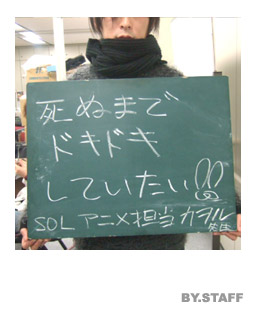 死ぬまで
ドキドキ
していたい!!
SOL アニメ担当 カヲル
先生
BY.STAFF